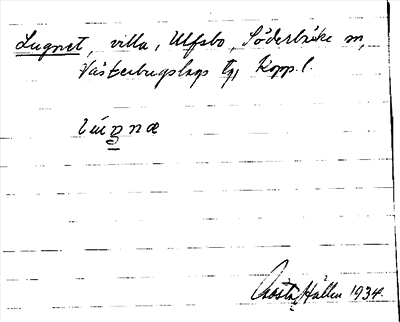 Lugnet, villa, Ulfsbo, Söderbärke sn,
Västerbergslags tg, Kopp. l.
lúŋnæ
Gösta Hallen 1934